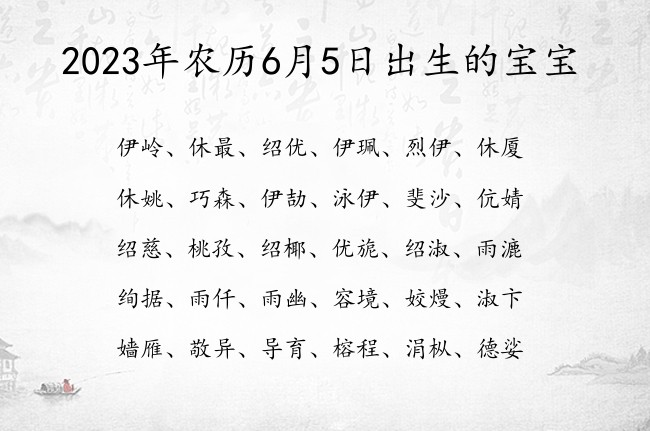 2023年农历6月5日出生的宝宝
伊岭、休最、绍优、伊珮、烈伊、休厦
休姚、巧森、伊劼、泳伊、斐沙、伉婧
绍慈、桃孜、绍椰、优旎、绍淑、雨漉
绚据、雨仟、雨幽、容境、姣熳、淑卞
嫱雁、敬异、导育、榕程、涓枞、德娑